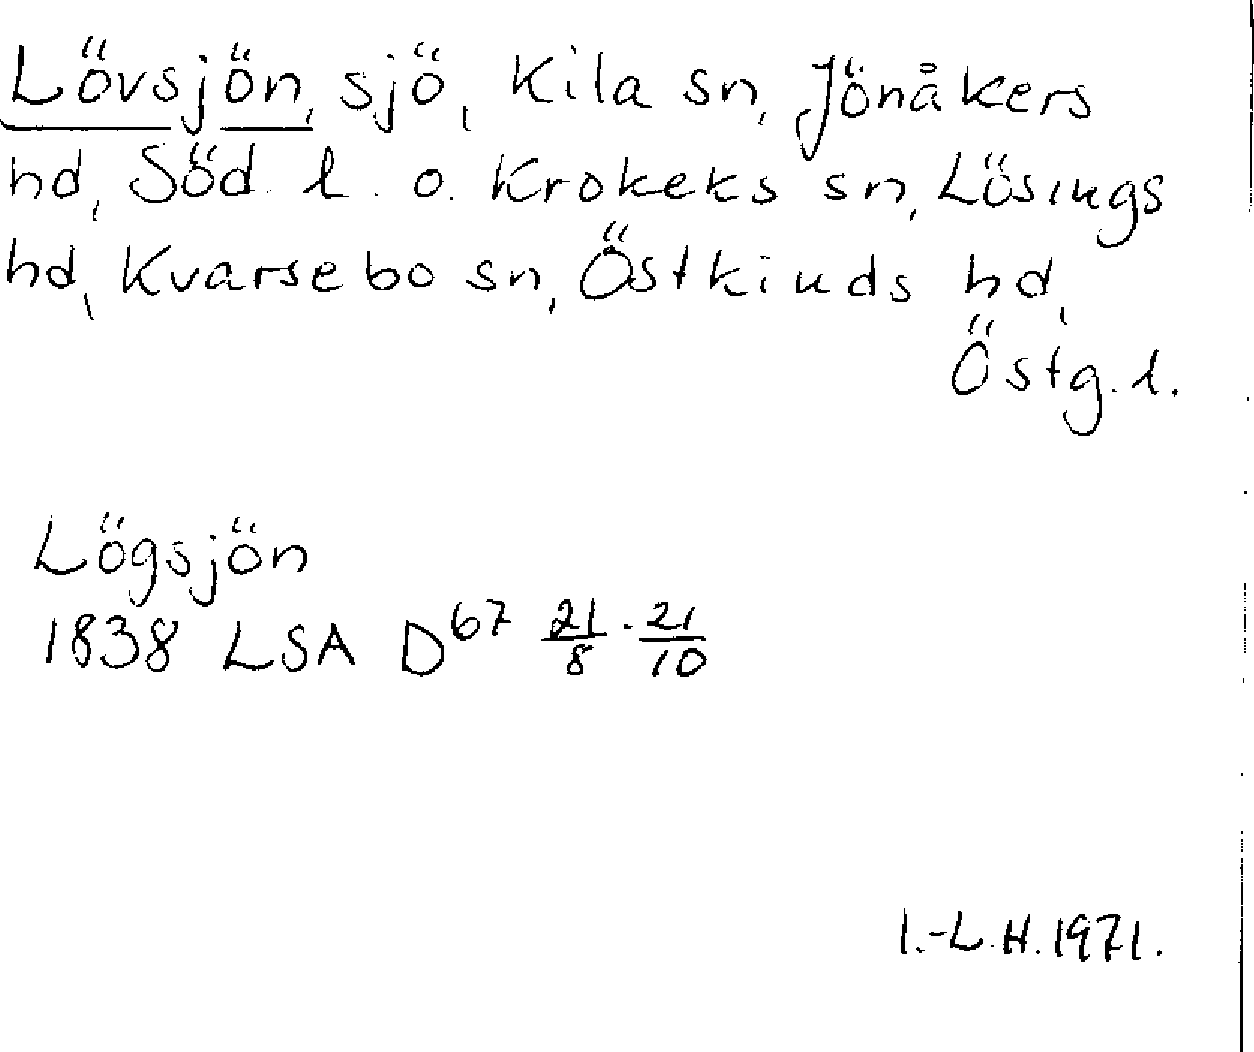 Lövsjön, sjö, Kila sn, Jönåkers
hd, Söd. l. o. Krokeks sn, Lösings
hd, Kvarsebo sn, Östkinds hd,
Östg. l.
Lögsjön
1838 LSA D⁶⁷ 21/8 - 21/10
I.-L.H. 1971.